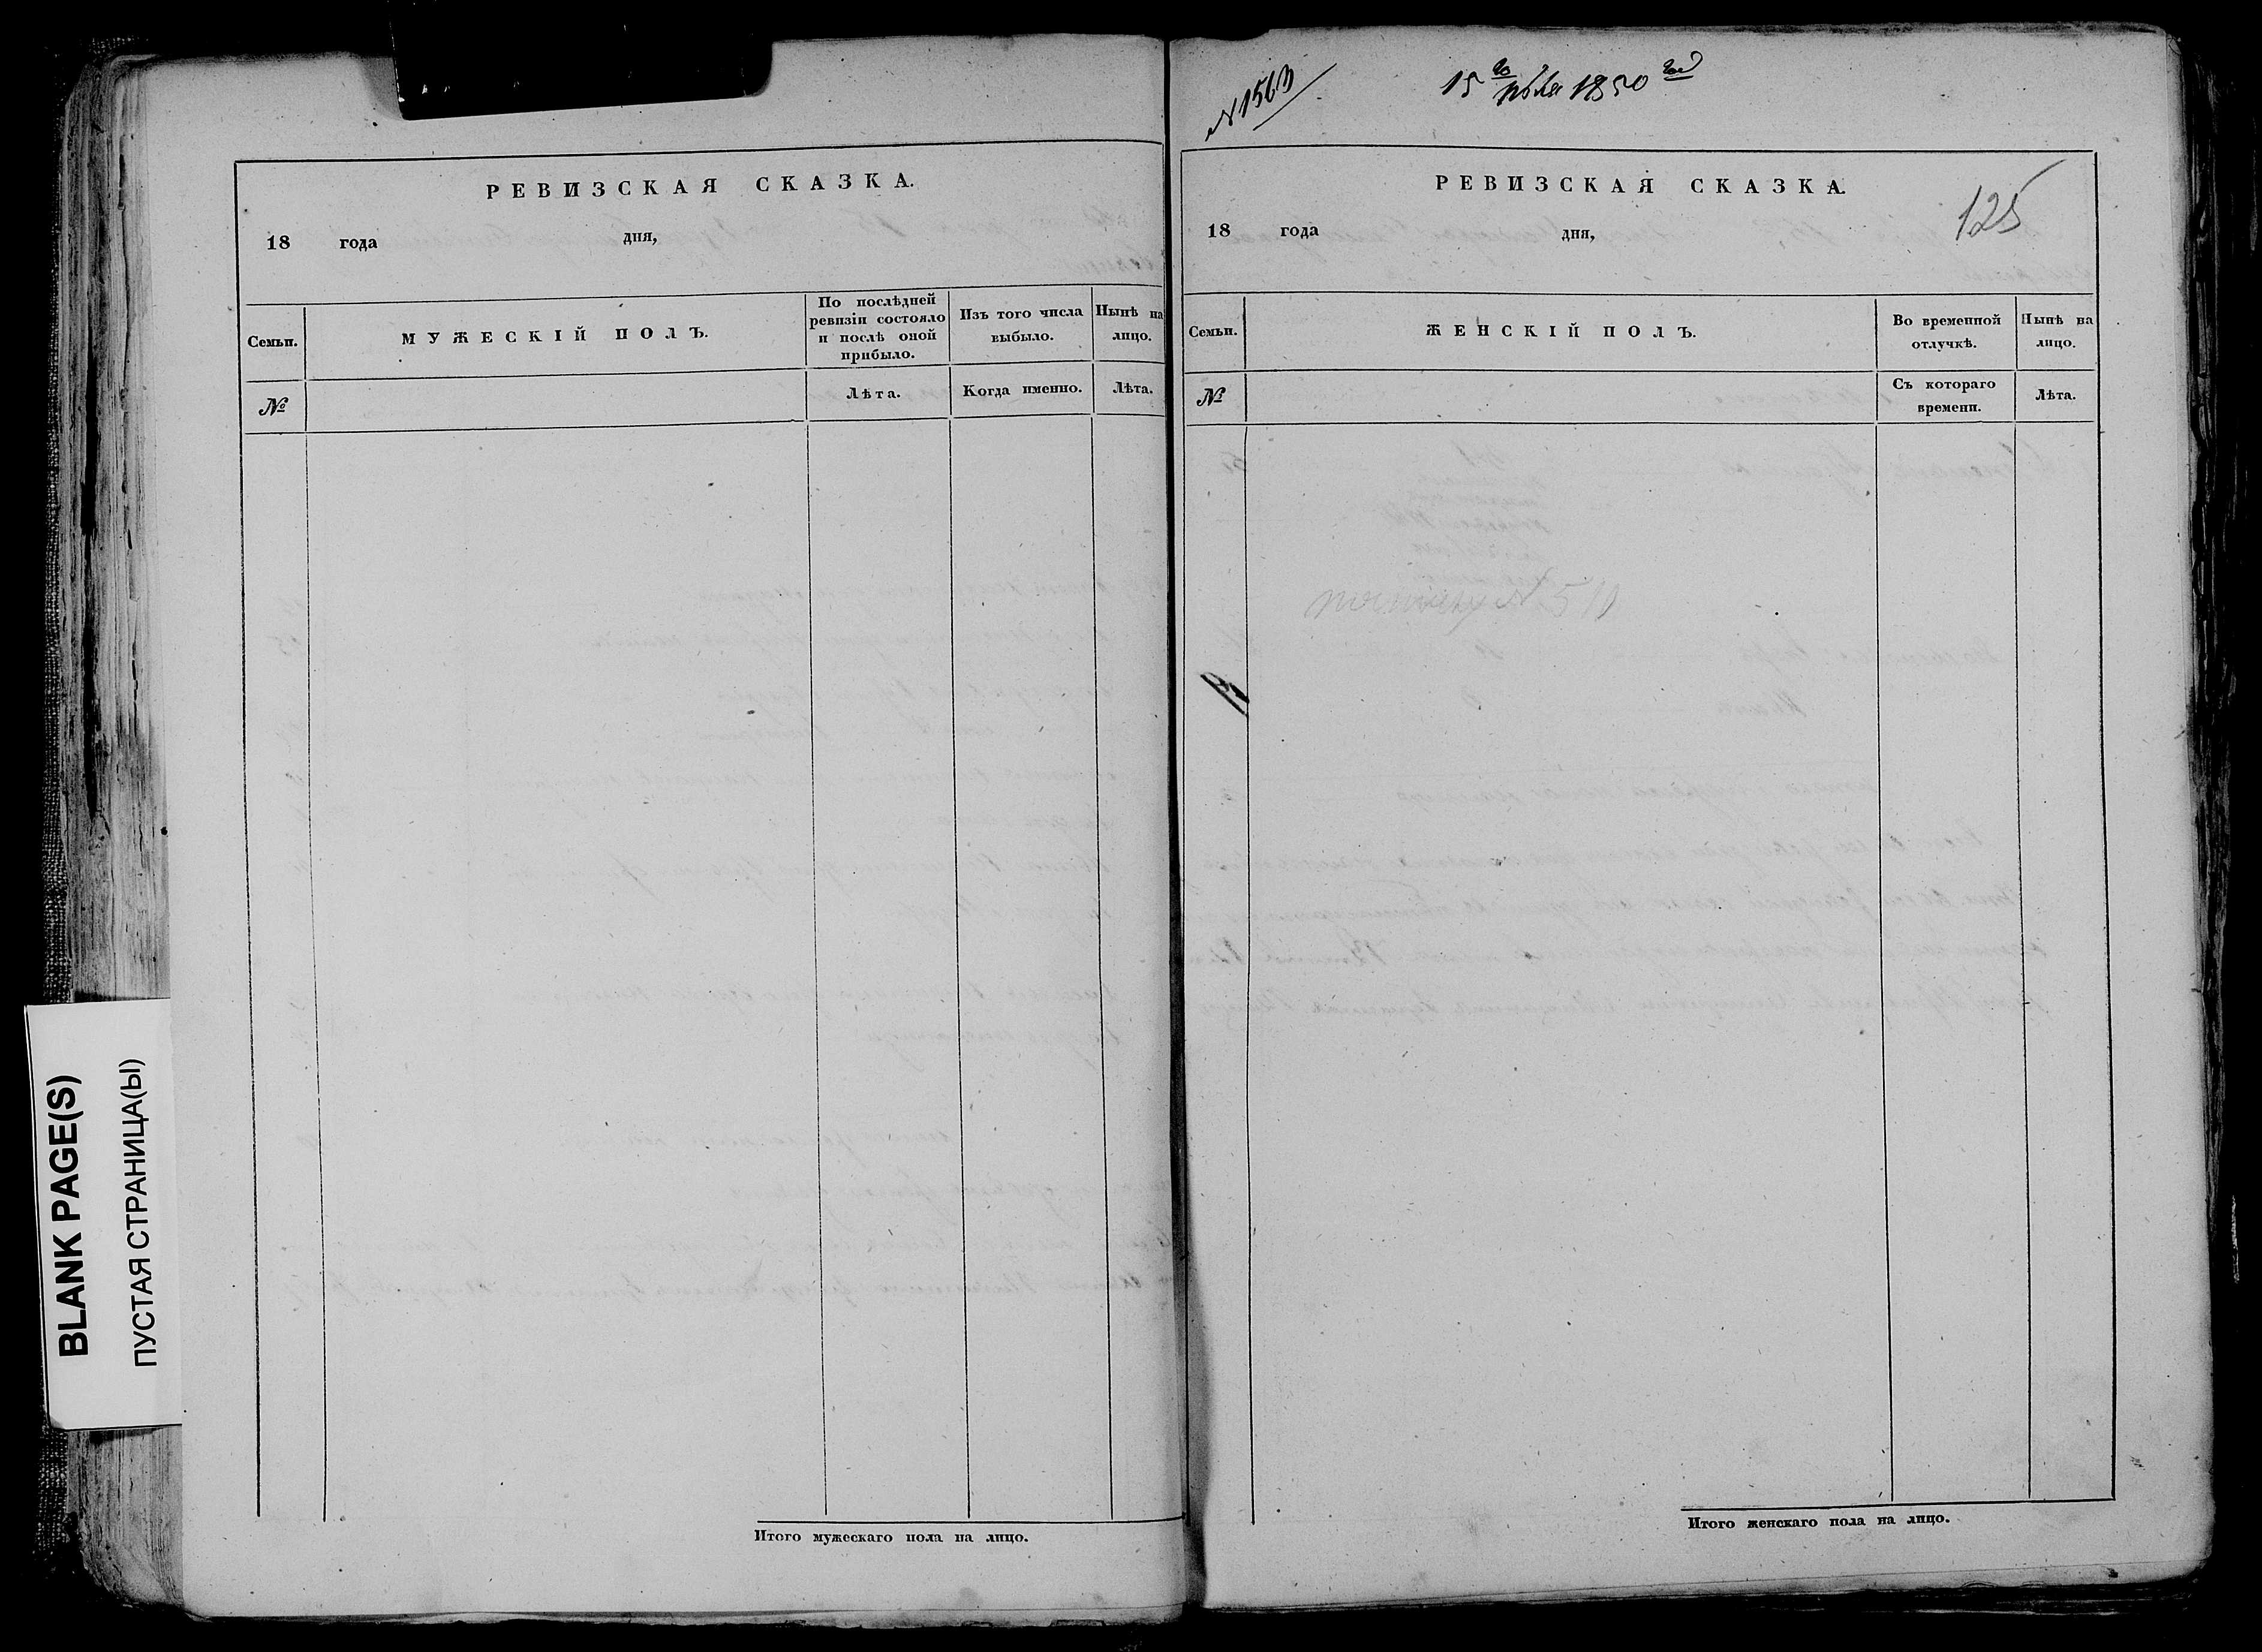 BLANK PAGE(S)
ПУСТАЯ СТРАНИЦА(Ы)
РЕВИЗСКАЯ СКАЗКА.
18 года дня,
Семьи.
МУЖЕСКІЙ ПОЛЪ.
По послѣдней
ревизіи состояло
и послѣ оной
прибыло.
Изъ того числа
выбыло.
Нынѣ на
лицо.
№
Лѣта.
Когда именно.
Лѣта.
Итого мужескаго пола на лицо.
N 1563
15 го 1850 год
РЕВИЗСКАЯ СКАЗКА.
125
18 года дня,
Семьи.
ЖЕНСКІЙ ПОЛЪ.
Во временной
отлучкѣ.
Нынѣ на
лицо.
№
Съ котораго
времени.
Лѣта.
N 510
Итого женскаго пола на лицо.